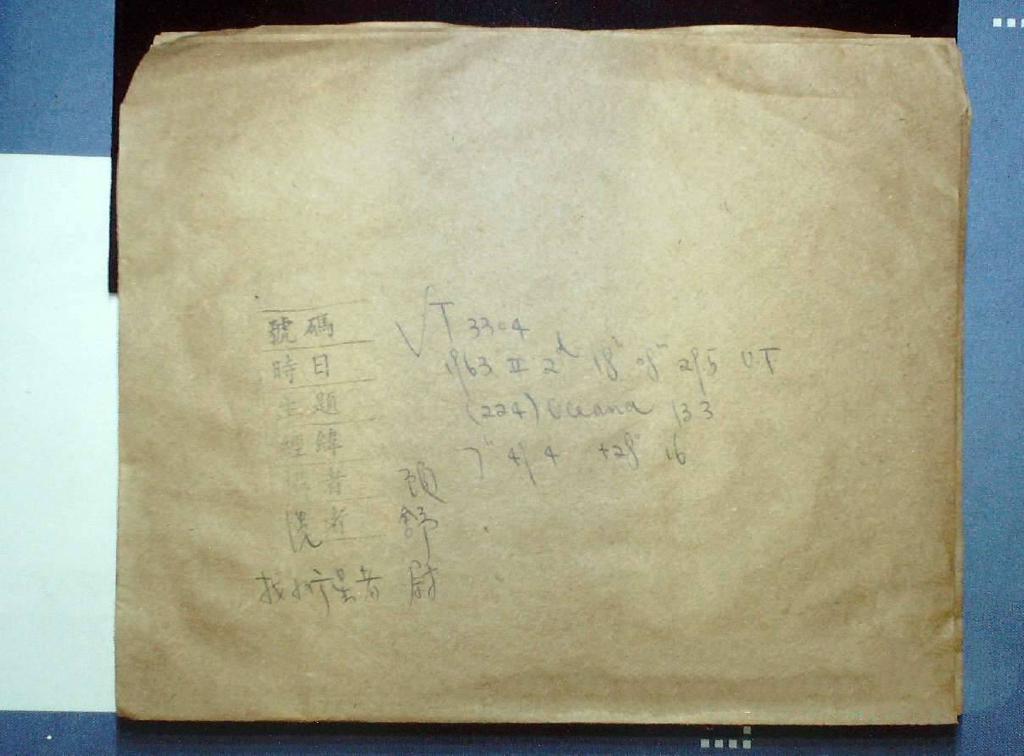 號碼 √T 3304
時日 1963 II 2ᵈ 18ʰ 08ᵐ 29ˢ5 U.T
主題 (224) Oceana 13.3
經緯 7ʰ 49ᵐ4 +28° 16
者
洗者 舒
找小行星者 尉